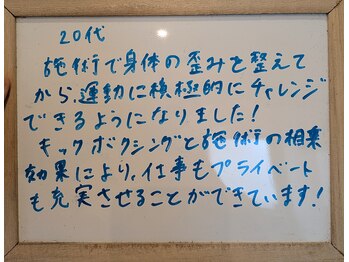 20代
施術で身体の歪みを整えて
から、運動に積極的にチャレンジ
できるようになりました!
キックボクシングと施術の相乗
効果により、仕事もプライベート
も充実させることができています!